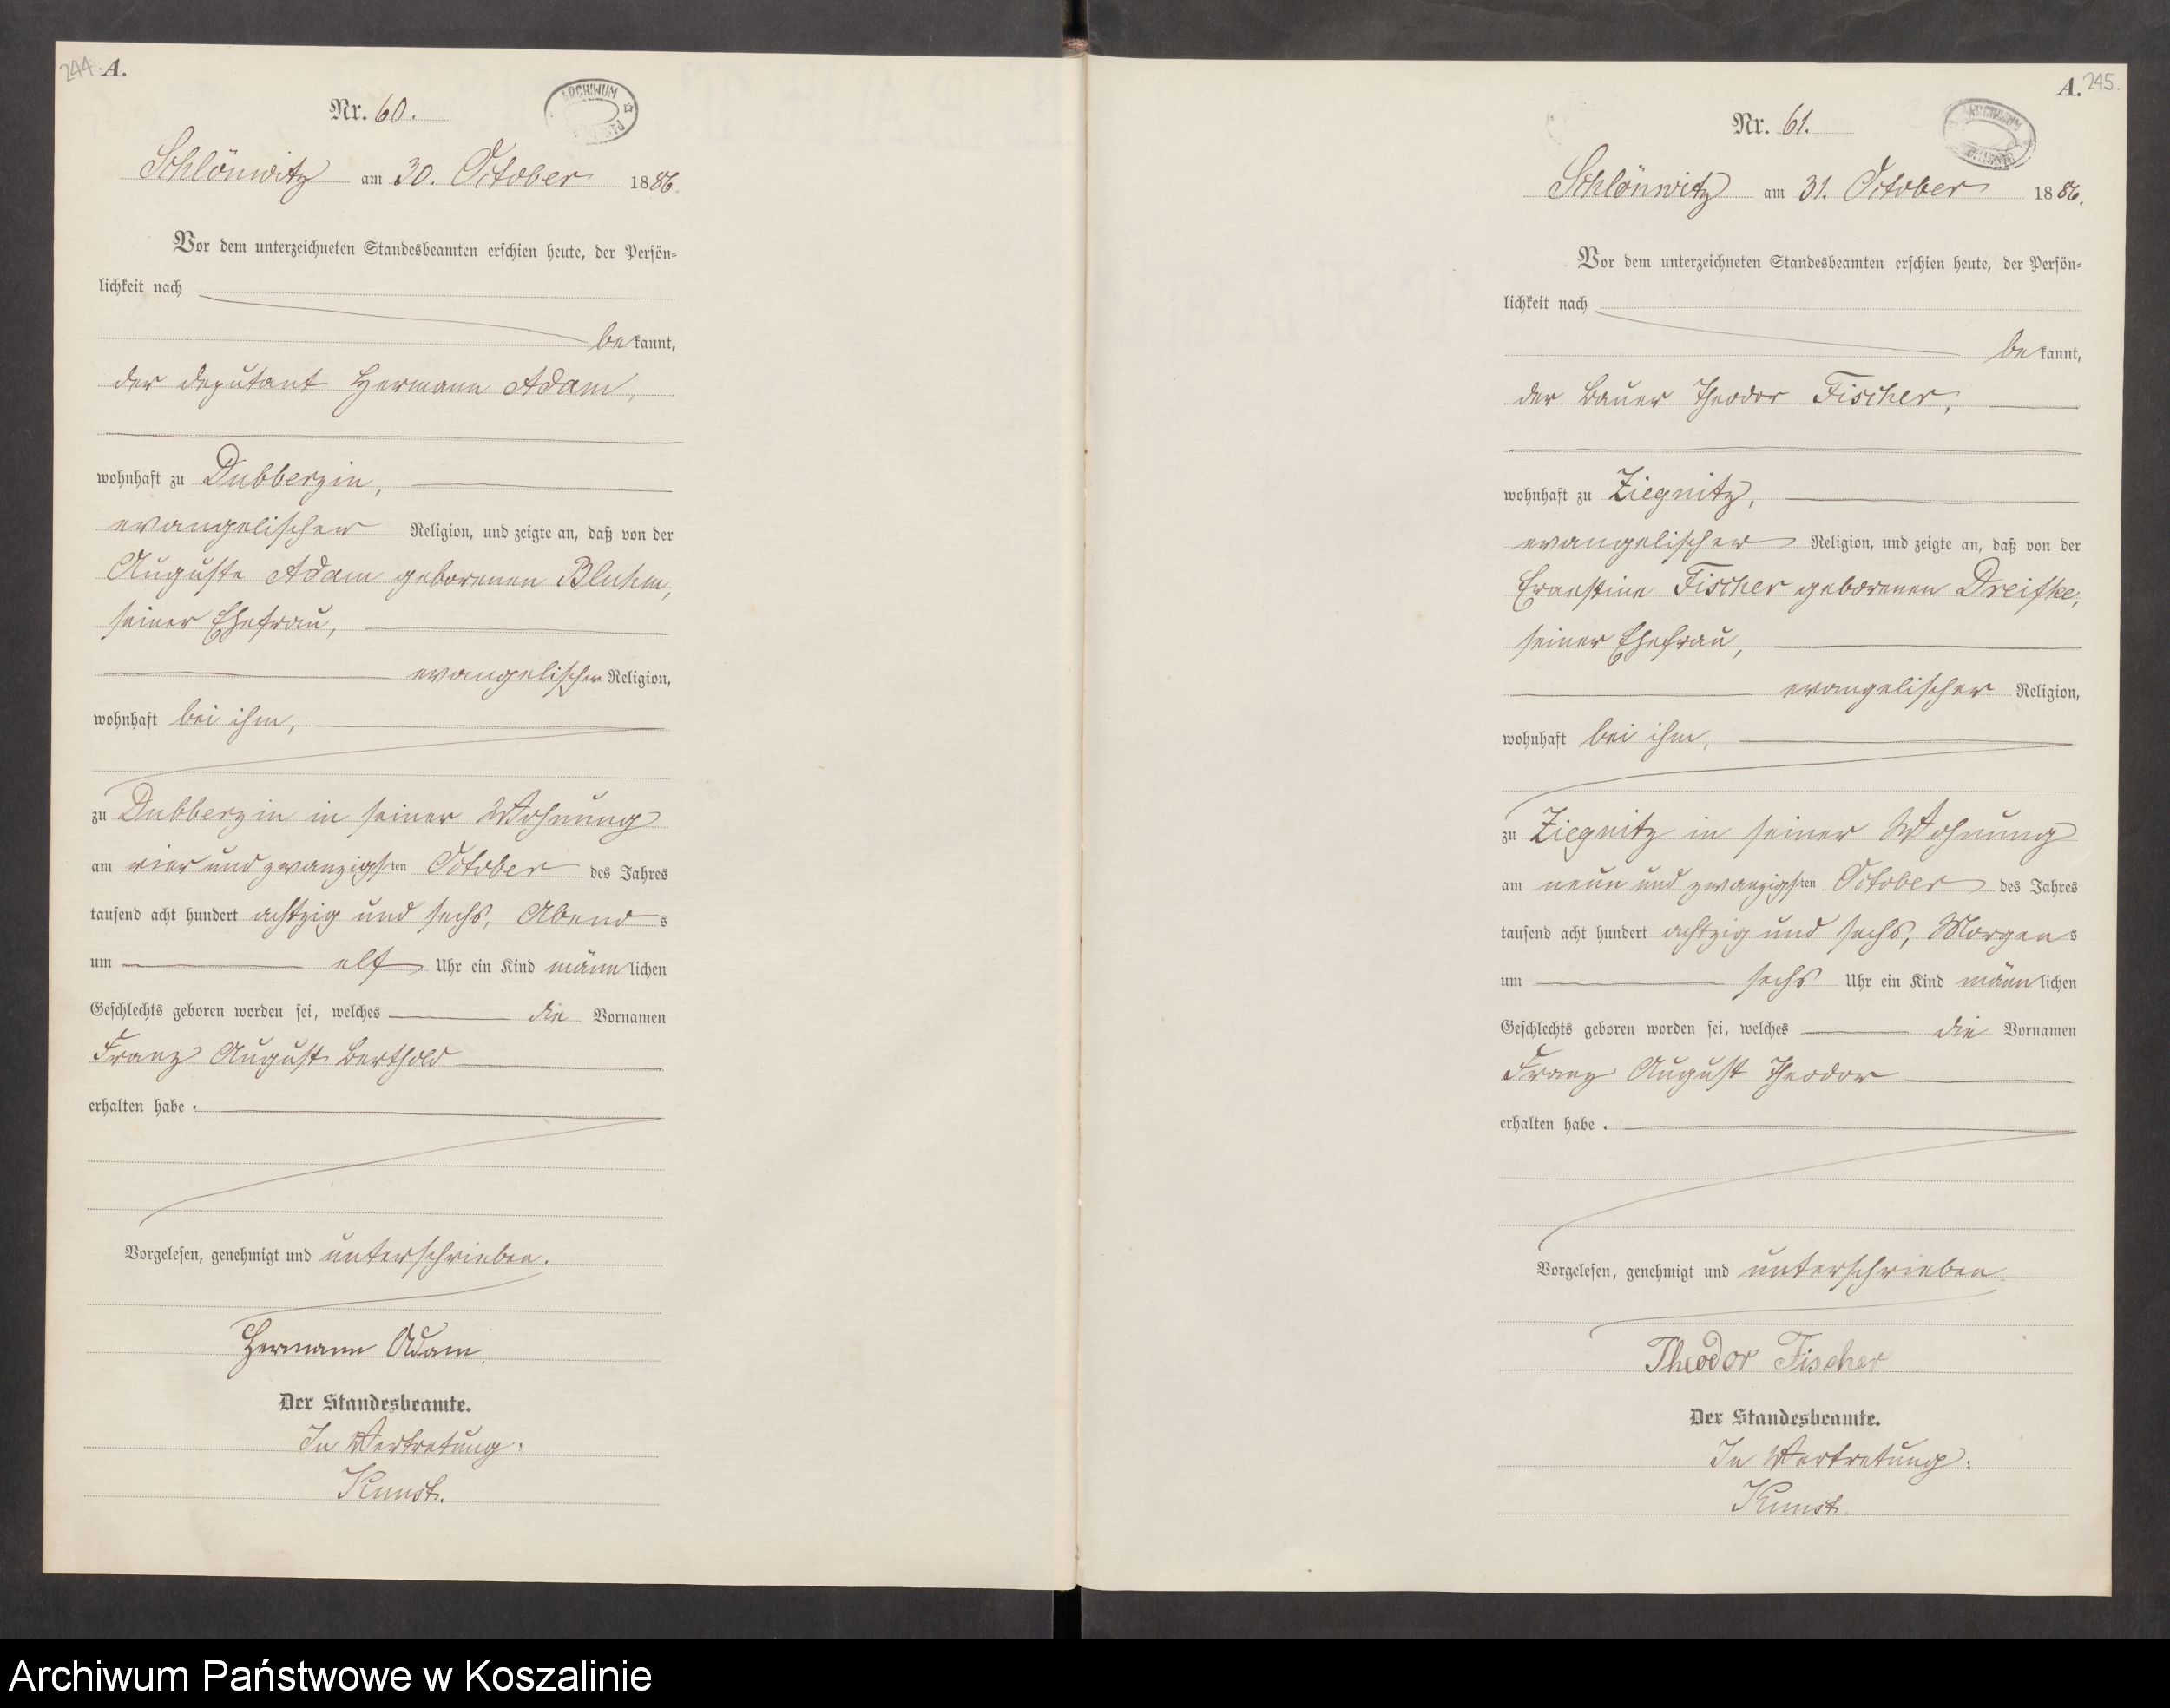 244. A.
ARCHIWUM
Nr. 60.
Schlönwitz am 30. October 1886.
Vor dem unterzeichneten Standesbeamten erschien heute, der Persön-
lichkeit nach
bekannt,
der Deputant Hermann Adam,
wohnhaft zu Dubberzin,
evangelischer Religion, und zeigte an, daß von der
Auguste Adam geborenen Bluhm,
seiner Ehefrau,
evangelischer Religion,
wohnhaft bei ihm,
zu Dubberzin in seiner Wohnung
am vier und zwanzigsten October des Jahres
tausend acht hundert achtzig und sechs, Abends
um elf Uhr ein Kind männlichen
Geschlechts geboren worden sei, welches die Vornamen
Franz August Berthold
erhalten habe.
Vorgelesen, genehmigt und unterschrieben.
Hermann Adam.
Der Standesbeamte.
In Vertretung:
Kunst.
A. 245.
ARCHIWUM
Nr. 61.
Schlönwitz am 31. October 1886.
Vor dem unterzeichneten Standesbeamten erschien heute, der Persön-
lichkeit nach
bekannt,
der Bauer Theodor Fischer,
wohnhaft zu Ziegnitz,
evangelischer Religion, und zeigte an, daß von der
Ernestine Fischer geborenen Dreifke,
seiner Ehefrau,
evangelischer Religion,
wohnhaft bei ihm,
zu Ziegnitz in seiner Wohnung
am neun und zwanzigsten October des Jahres
tausend acht hundert achtzig und sechs, Morgens
um sechs Uhr ein Kind männlichen
Geschlechts geboren worden sei, welches die Vornamen
Franz August Theodor
erhalten habe.
Vorgelesen, genehmigt und unterschrieben.
Theodor Fischer
Der Standesbeamte.
In Vertretung:
Kunst.
Archiwum Państwowe w Koszalinie